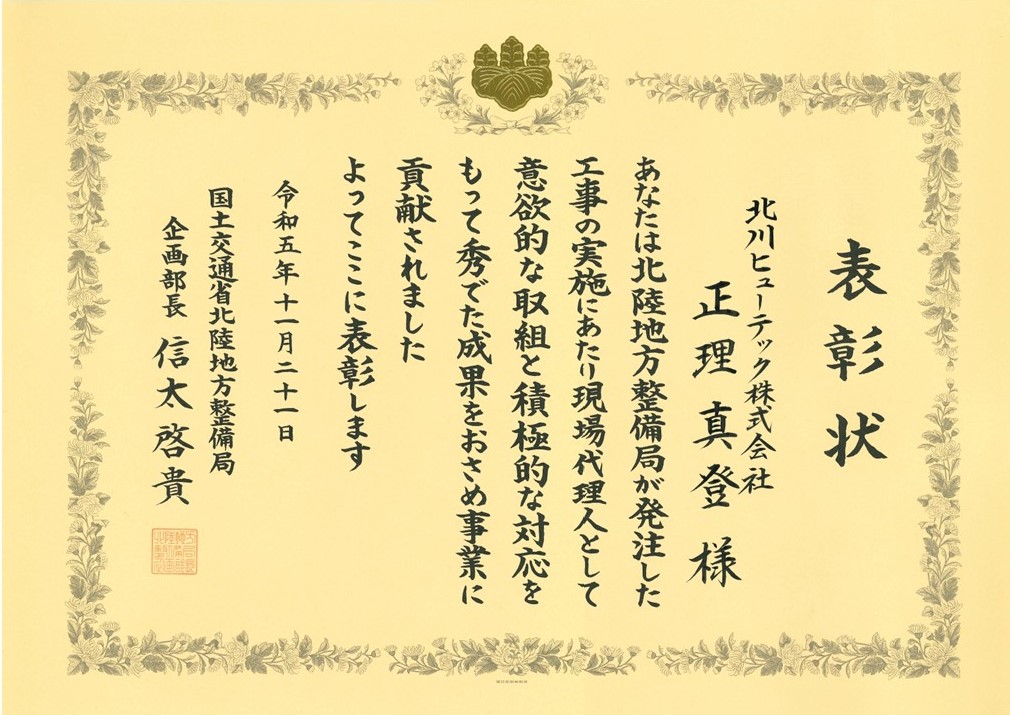 表彰状
北川ヒューテック株式会社
正理真登様
あなたは北陸地方整備局が発注した
工事の実施にあたり現場代理人として
意欲的な取組と積極的な対応を
もって秀でた成果をおさめ事業に
貢献されました
よってここに表彰します
令和五年十一月二十一日
国土交通省北陸地方整備局
企画部長 信太啓貴